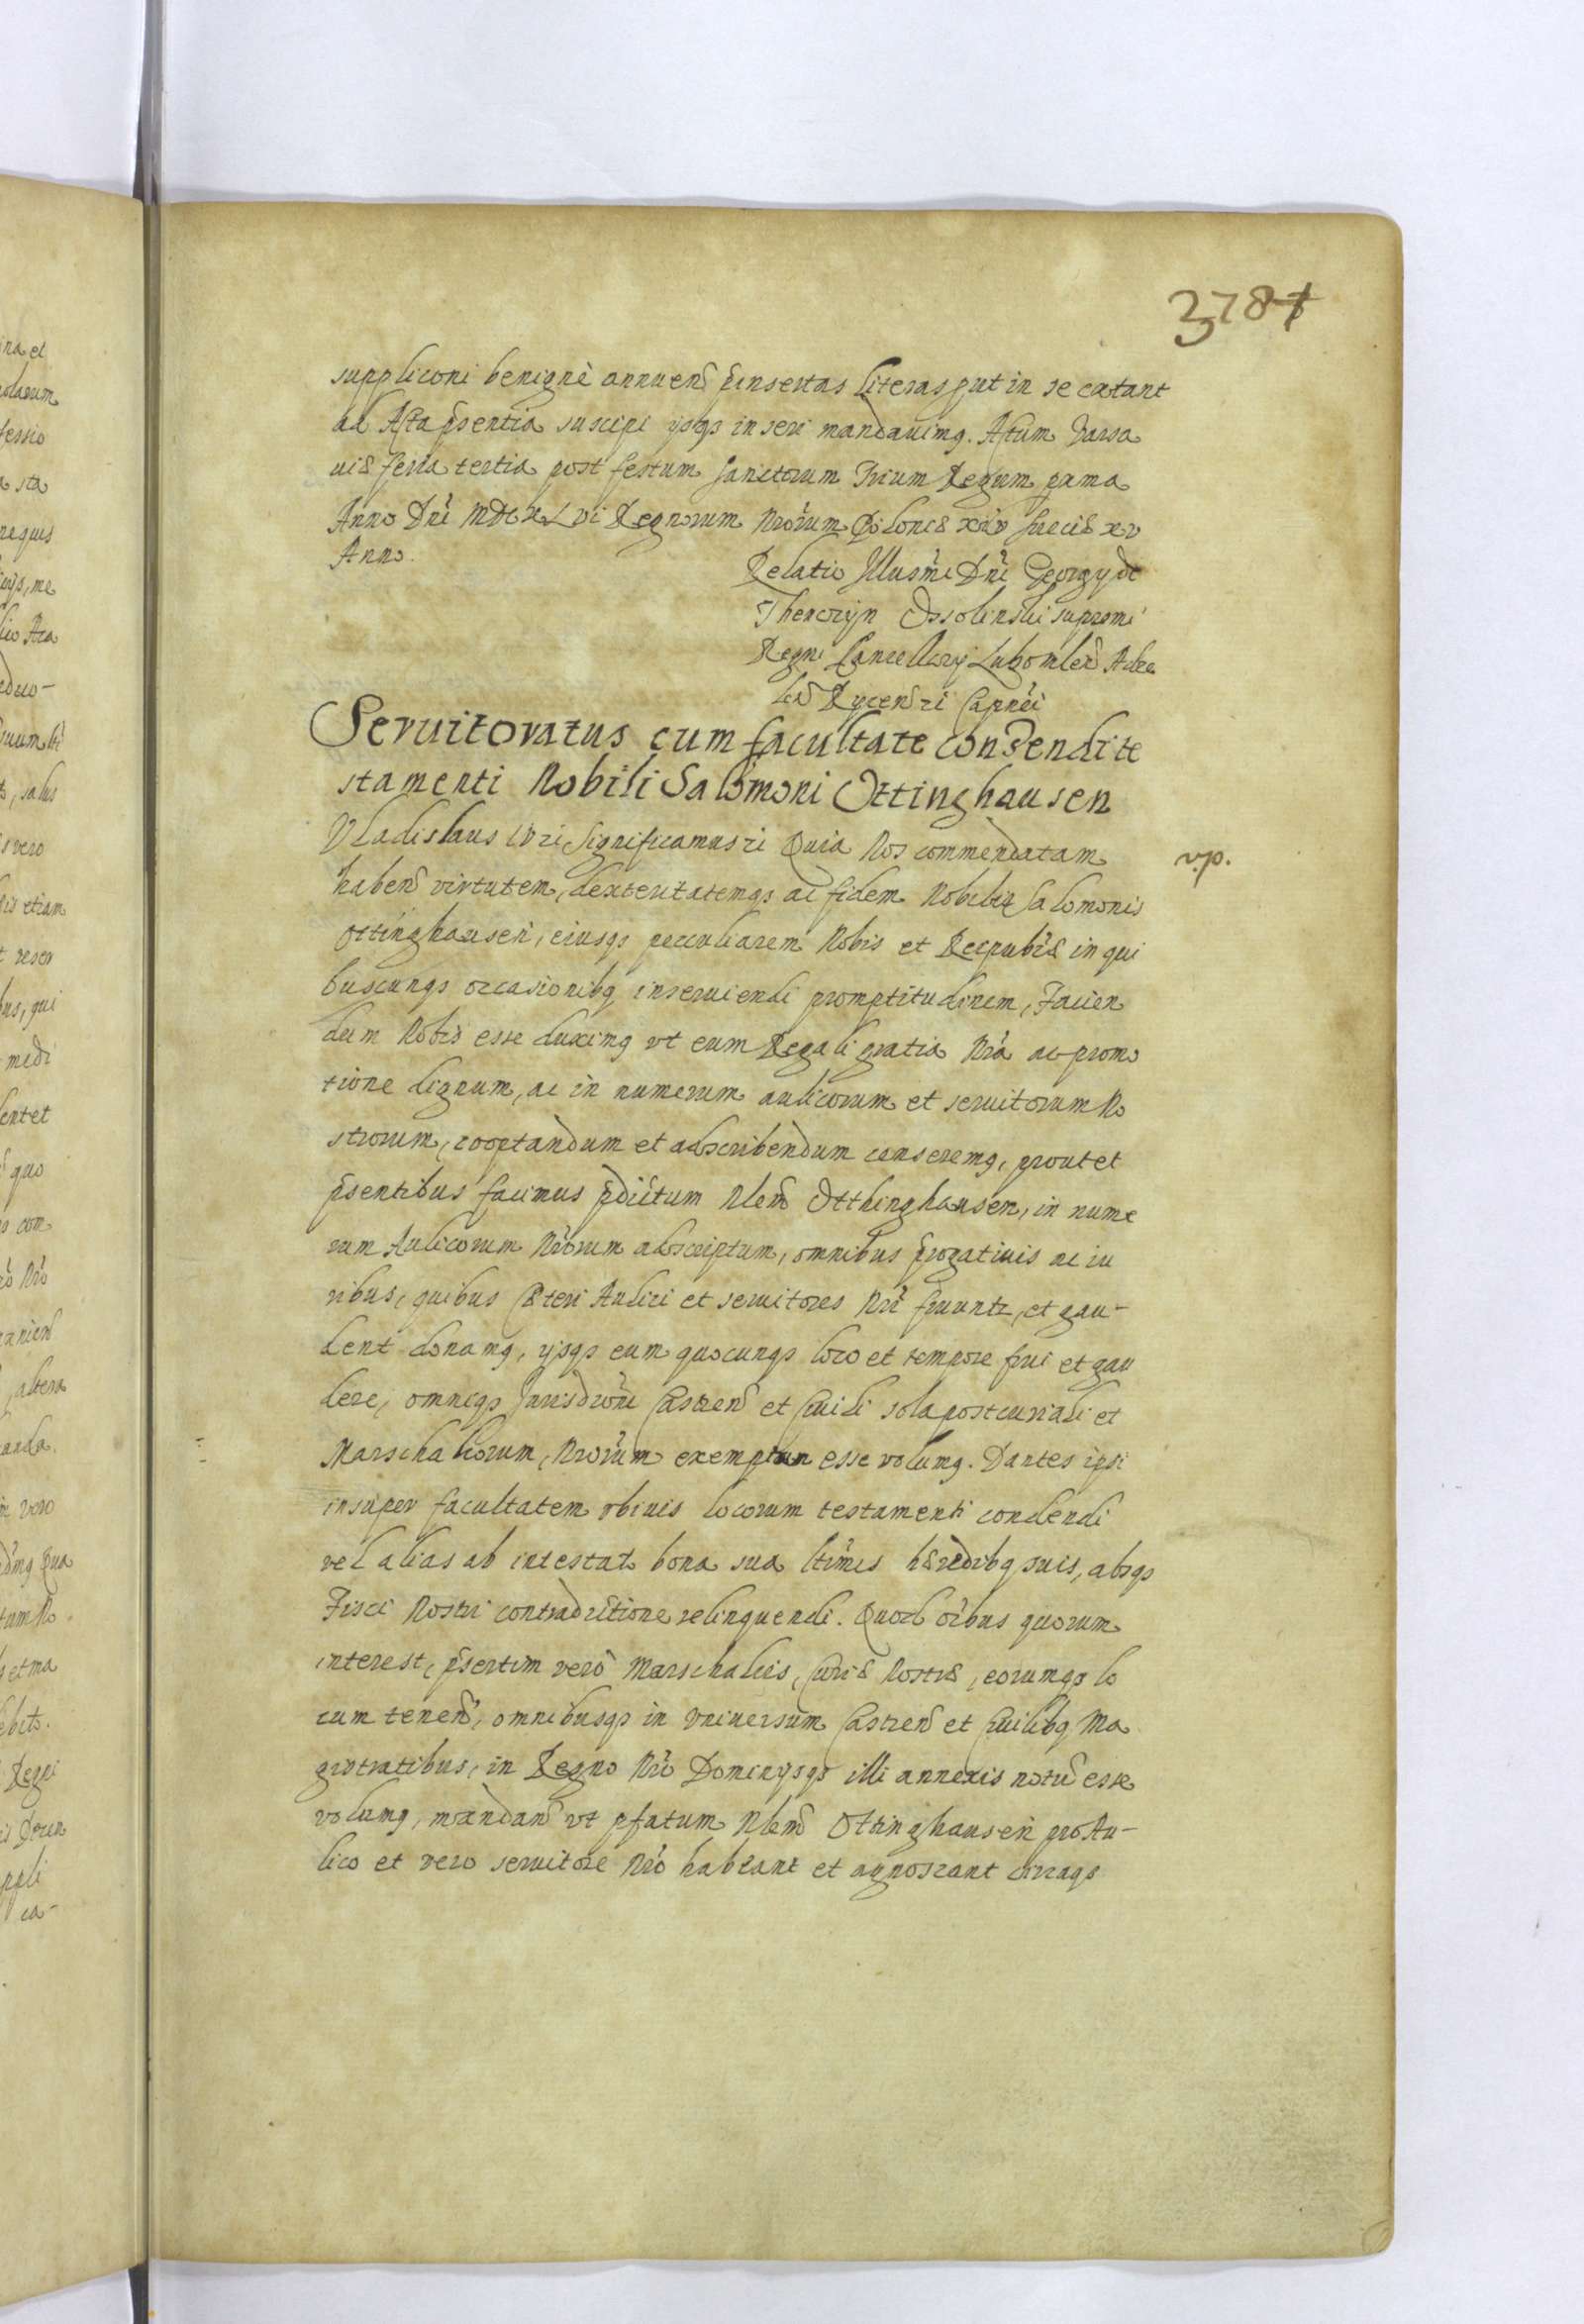 3781
suppliconi benignè annuen̄ p̄insertas literas put in se extant
ad Acta p̄sentia suscipi ysqs inseri mandauimq. Actum Varsa
uiæ feria tertia post festum Sanctorum Trium Regum p̱xma
Anno Dn̄i MDCXLVI Regnorum Nrōrum Poloniæ XIIIV Sueciæ XV
Anno.
Relatio Illusm̄i Dn̄i Georgy de
Thenczyn Ossolinski supremi
Regni Cancellarÿ Lubomlen̄
len̄ Rycen̄ zi Capnēi
Seruitoratus cum facultate condendi te
stamenti Nobili Salomoni Ottinghausen
Vladislaus IV zi Significamus zi Quia Nos commendatam
v.p.
haben̄ virtutem, dexteritatemqs ac fidem Nobilis Salomonis
Ottinghausen, eiusqs peculiarem Nobis et Reipub̄æ in qui
buscunqs occasionibq inseruiendi promptitudinem, Facien
dum Nobis esse duximq vt eum Regali gratia Nrā ac promo
tione dignum, ac in numerum aulicorum et seruitorum No
strorum, cooptandum et adscribendum censeremq, prout et
p̄sentibus facimus p̄dictum Nlem̄ Otthinghausen, in nume
rum Aulicorum Nrōrum adscriptum, omnibus p̄rogatiuis ac iu
ribus, quibus cæteri Aulici et seruitores Nrī fruuntr, et gau-
dent donamq, ysqs eum quocunqs loco et tempore frui et gau
dere, omniqs Jurisdicōni Castren̄ et Ciuili sola post curiali et
Marschalcorum, Nrōrum exemptum esse volumq. Dantes ipsi
insuper facultatem vbiuis locorum testamenti condendi
vel alias ab intestat bona sua ltīmis hæredibq suis, absqs
Fisci Nostri contradictione relinquendi. Quod oībus quorum
interest, p̄sertim verò Marschalcis, Curiæ Nostræ, eorumqs lo
cum tenen̄, omnibusqs in vniuersum Castren̄ et Ciuilibq Ma
gistratibus, in Regno Nrō Dominysqs illi annexis notū esse
volumq, mandan̄ vt p̱fatum Nlem̄ Ottinghausen pro Au-
lico et vero seruitore Nrō habeant et agnoscant circaqs